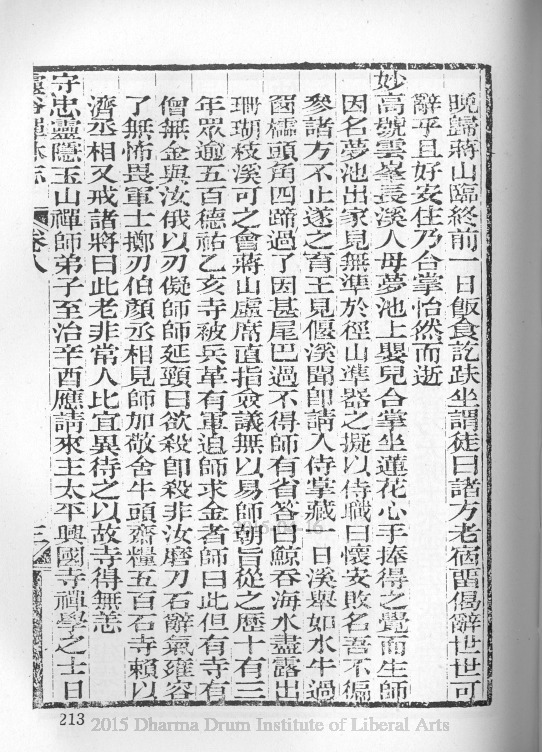 晚歸蔣山臨終前一日飯食訖趺坐謂徒曰諸方老宿畱偈辭世世可
辭乎且好安住乃合掌怡然而逝
妙高號雲峯長溪人母夢池上嬰兒合掌坐蓮花心手捧得之覺而生師
因名夢池出家見無準於徑山準器之擬以侍職曰懷安敗名吾不徧
參諸方不止遂之育王見偃溪聞卽請入侍掌藏一日溪舉如水牛過
窗櫺頭角四蹄過了因甚尾巴過不得師有省答曰鯨吞海水盡露出
珊瑚枝溪可之會蔣山虛席直指僉議無以易師朝旨從之歷十有三
年眾逾五百德祐乙亥寺被兵革有軍迫師求金者師曰此但有寺有
僧無金與汝俄以刃擬師師延頸曰欲殺卽殺非汝磨刀石辭氣雍容
了無怖畏軍士擲刃伯顏丞相見師加敬舍牛頭齋糧五百石寺賴以
濟丞相又戒諸將曰此老非常人比宜異待之以故寺得無恙
守忠靈隱玉山禪師弟子至治辛酉應請來主太平興國寺禪學之士日
靈谷禪林志
卷八
三
213
2015 Dharma Drum Institute of Liberal Arts